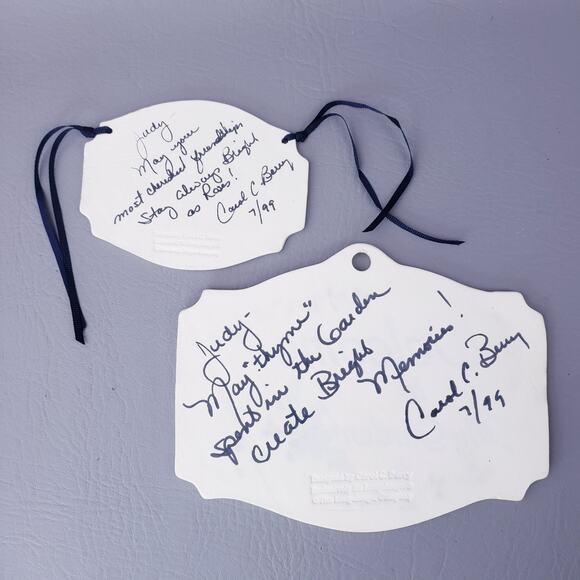 Judy-
May your
most cherished friendships
Stay always Bright
as Roses!
Carol C. Berry
7/99
Judy-
May "thyme"
spent in the Garden
create Bright
Memories!
Carol C. Berry
7/99
Designed by Carol C. Berry